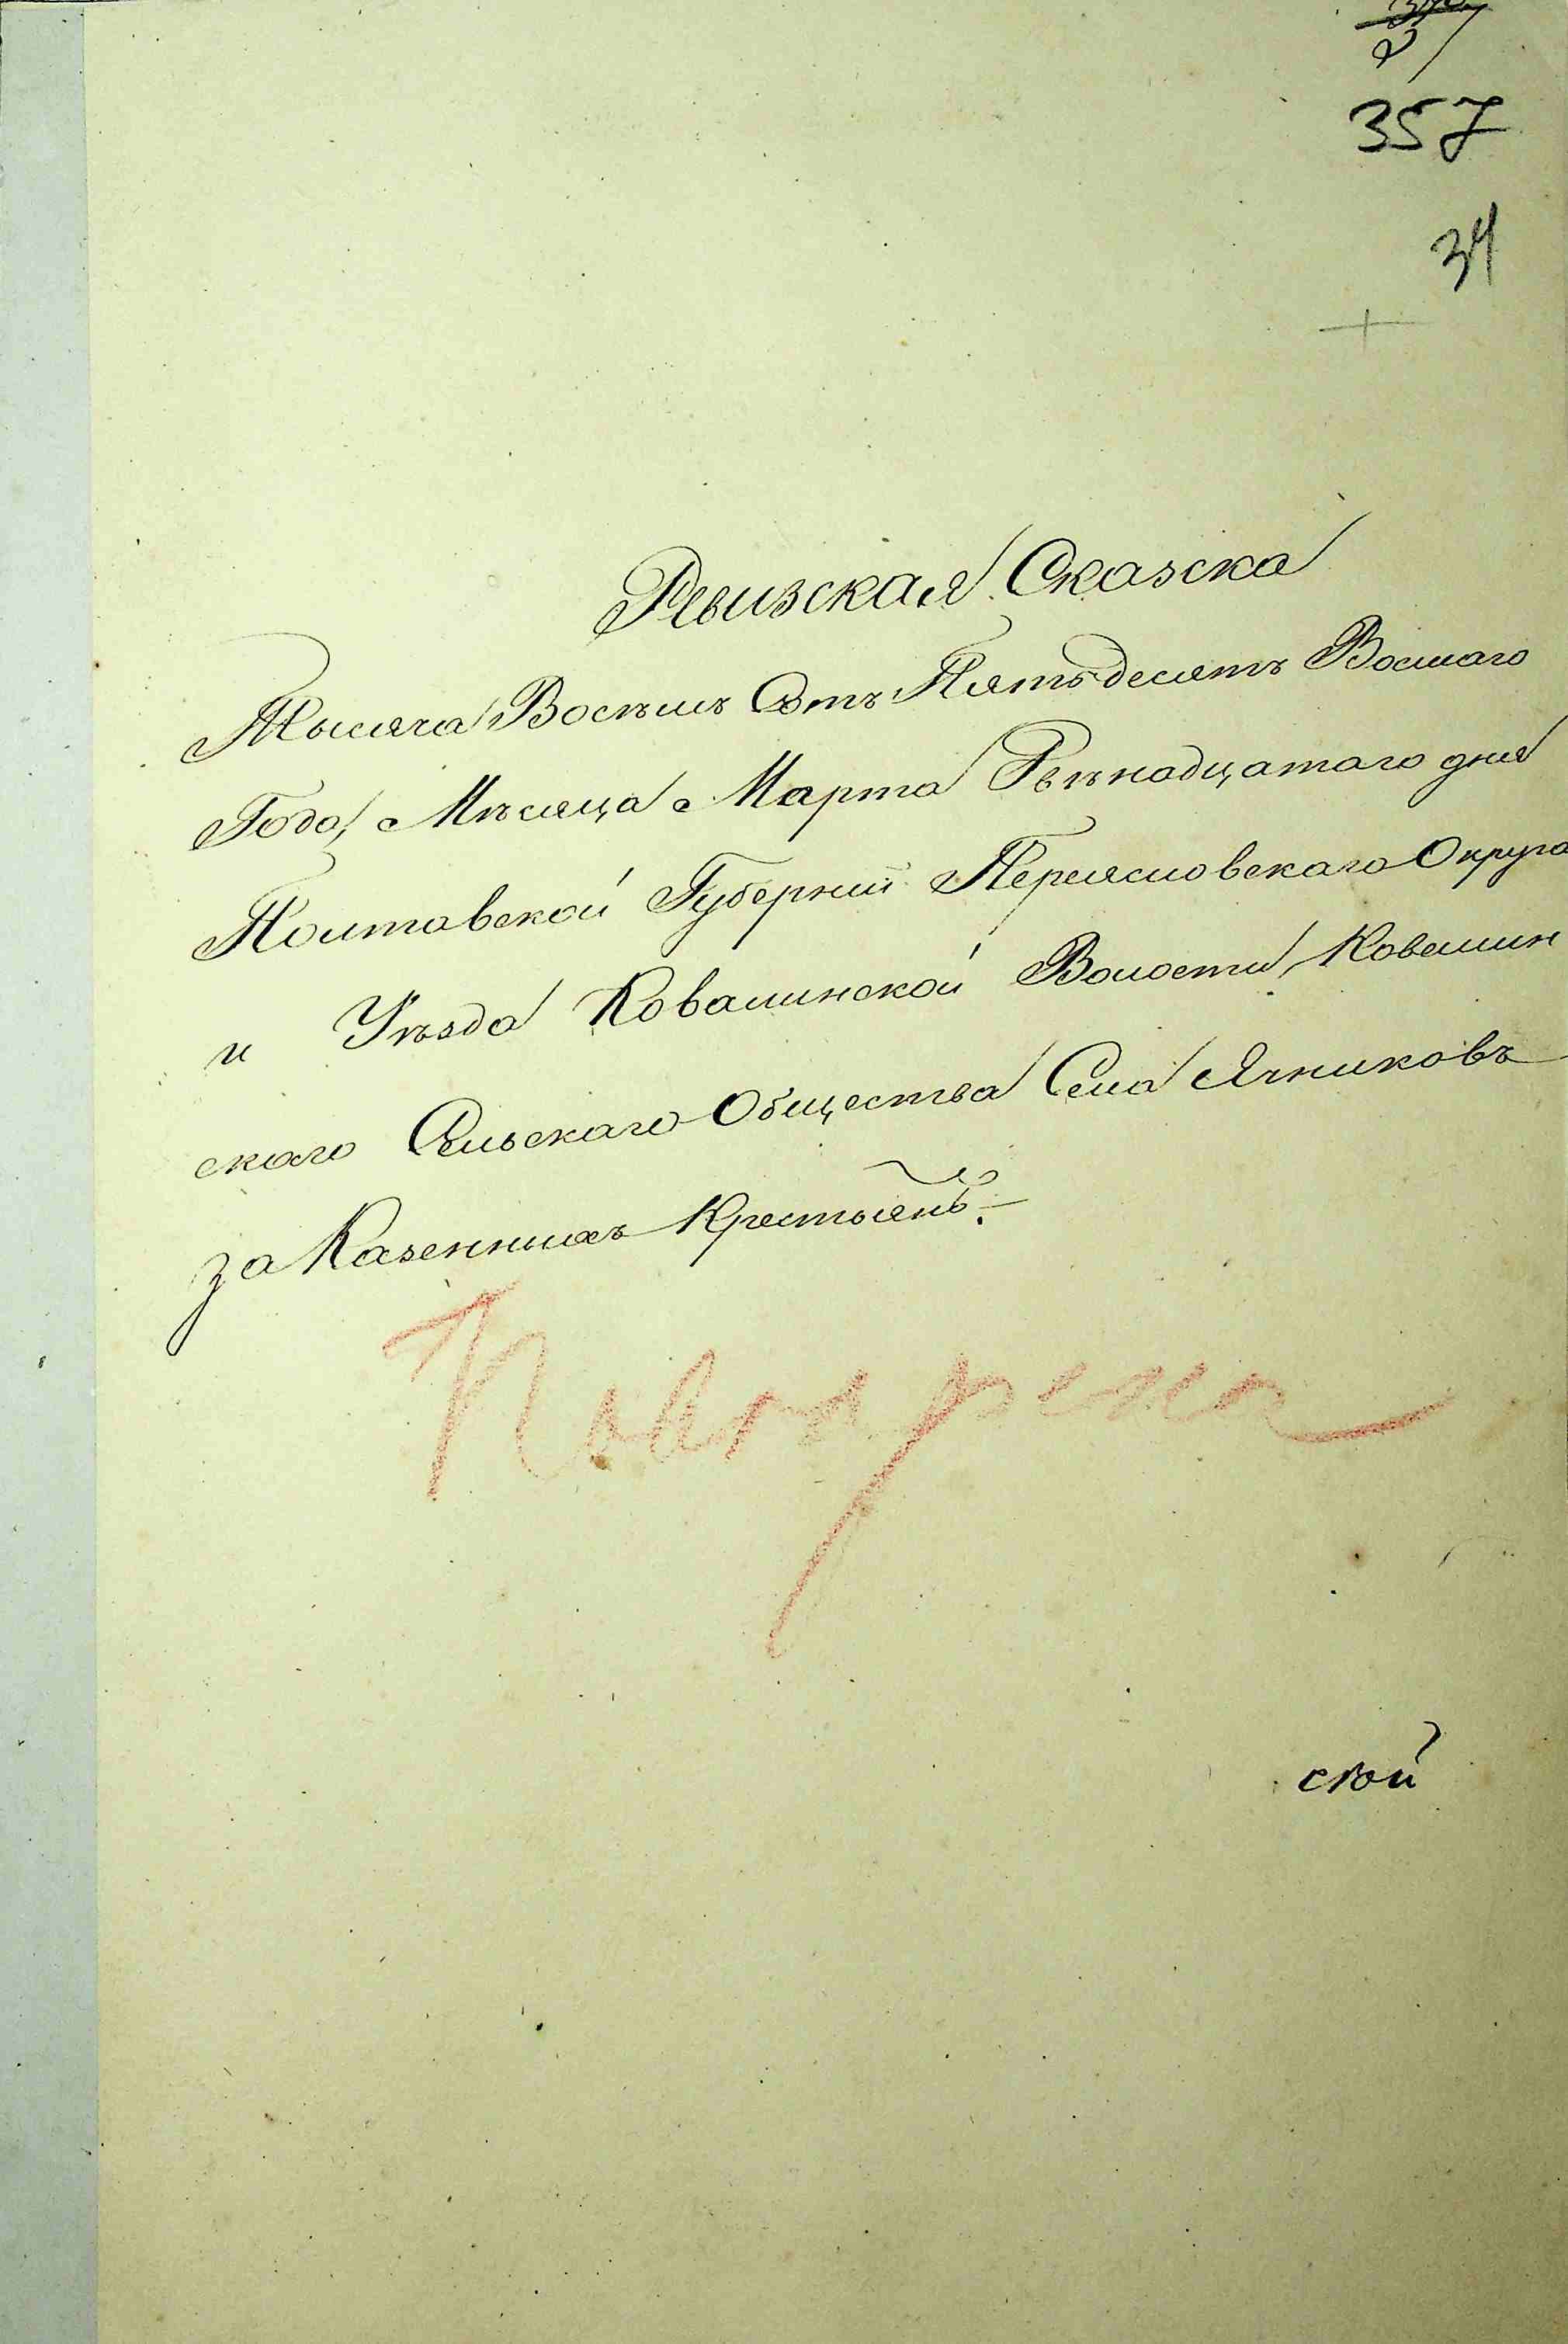 357
34
Ревизская Сказка
Тысяча Восемъ Сотъ Пятьдесятъ Восмаго
Года, Мѣсяца Марта двѣнадцатаго дня
Полтавской Губернии Переясловскаго Округа
и Уѣзда Ковалинской Волости, Ковалин
скаго Сельскаго Общества Села Ячниковъ
за Казенныхъ Крестьянъ.
Повѣрена